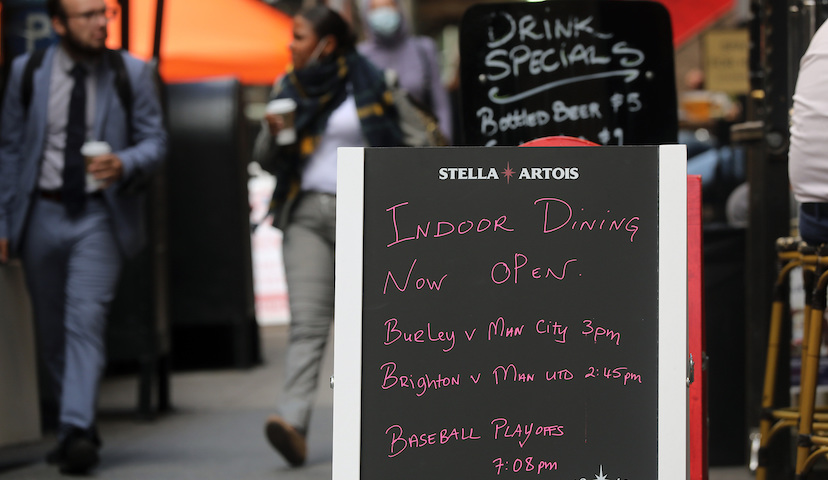 DRINK
SPECIALS
BOTTLED BEER $5
STELLA ARTOIS
INDOOR DINING
NOW OPEN.
BURLEY V MAN CITY 3pm
BRIGHTON V MAN UTD 2:45pm
BASEBALL PLAYOFFS
7:08pm